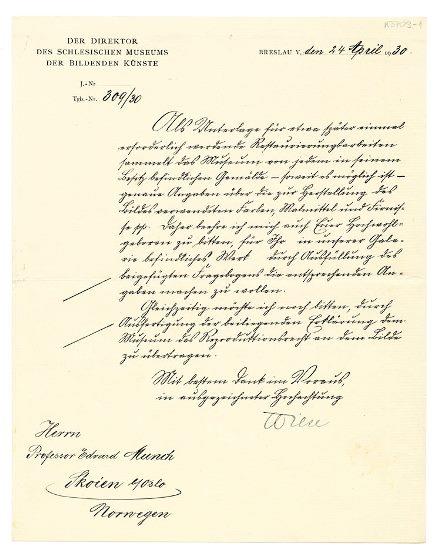 K5703-1
DER DIREKTOR
DES SCHLESISCHEN MUSEUMS
DER BILDENDEN KÜNSTE
BRESLAU V, den 24 April 1930.
J.-Nr
Tgb.-Nr. 309/30
Als Unterlage für etwa später einmal
erforderlich werdende Restaurierungsarbeiten
sammelt das Museum von jedem in seinem
Besitz befindlichen Gemälde – soweit es möglich ist –
genaue Angaben über die zur Herstellung des
Bildes verwendeten Farben, Malmittel und Firnis-
se pp. Daher beehre ich mich auch Euer Hochwohl-
geboren zu bitten, für Ihr in unserer Gale-
rie befindliches Werk durch Ausfüllung des
beigefügten Fragebogens die entsprechenden An-
gaben machen zu wollen.
Gleichzeitig möchte ich noch bitten, durch
Ausfertigung der beiliegenden Erklärung dem
Museum das Reproduktionsrecht an dem Bilde
zu übertragen.
Mit bestem Dank im Voraus,
in ausgezeichneter Hochachtung
Herrn
Professor Edvard Munch
Skoien b/Oslo
Norwegen